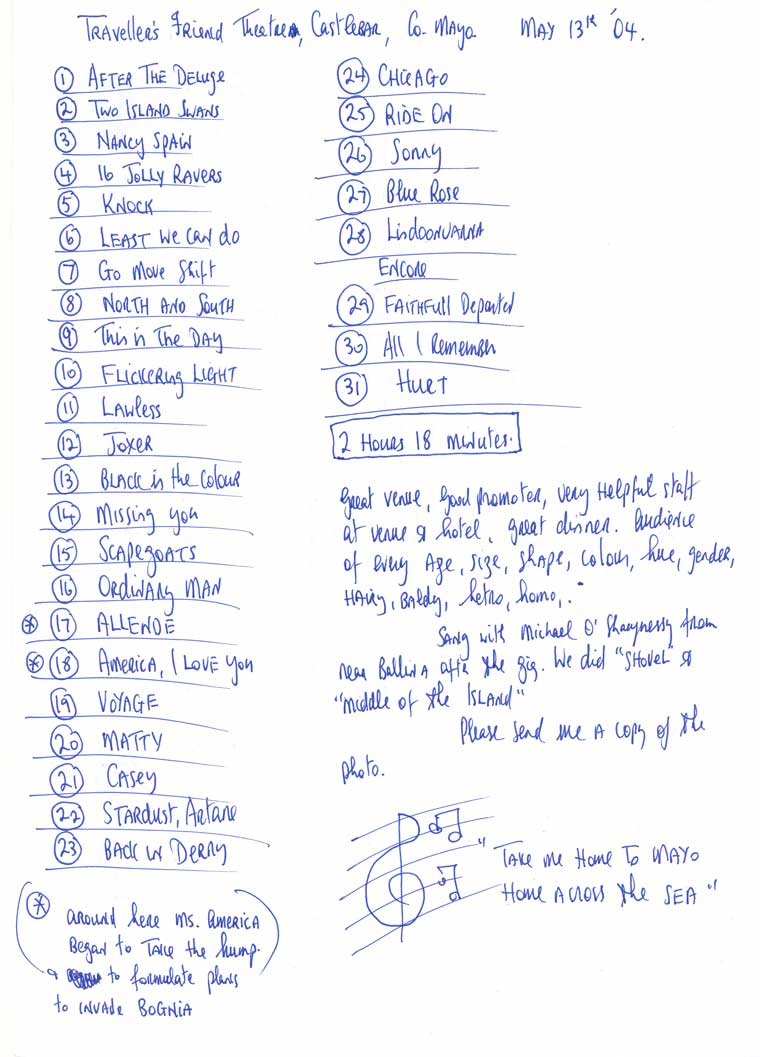 Traveller's Friend Theatre, Castlebar, Co. Mayo. MAY 13th '04.
1 AFTER THE DELUGE
2 TWO ISLAND SWANS
3 NANCY SPAIN
4 16 JOLLY RAVERS
5 KNOCK
6 LEAST WE CAN DO
7 Go Move Shift
8 NORTH AND SOUTH
9 This is The DAY
10 FLICKERING LIGHT
11 LAWLESS
12 JOXER
13 BLACK is the COLOUR
14 Missing you
15 SCAPEGOATS
16 ORDINARY MAN
* 17 ALLENDE
* 18 America, I LOVE YOU
19 VOYAGE
20 MATTY
21 CASEY
22 STARDUST, Artane
23 BACK IN DERRY
* around here Ms. America
Began to Take the hump.
& to formulate plans
to INVADE BOGNIA
24 CHICAGO
25 RIDE ON
26 Sonny
27 Blue Rose
28 Lisdoonvarna
ENCORE
29 FAITHFULL Departed
30 All I Remember
31 HURT
2 HOURS 18 MINUTES.
Great venue, Good promoter, very Helpful staff
at venue & hotel, great dinner. Audience
of every Age, size, shape, colour, hue, gender,
HAIRY, BALDY, hetro, homo,.
Sang with Michael O' Shaughnessy from
near Ballina after the gig. We did "SHOVEL" &
"Middle of the ISLAND"
Please send me A copy of the
photo.
" TAKE me Home To MAYO
Home Across the SEA "